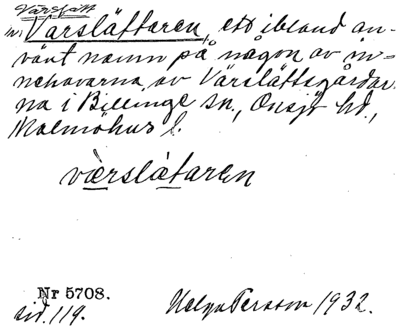 Varslätt
m. Varslättaren, ett ibland an-
vänt namn på någon av in-
nehavarna av Värslättsgårdar-
na i Billinge sn., Onsjö hd.,
Malmöhus l.
værslätaren
Nr 5708.
sid. 119.
Helga Persson 1932.